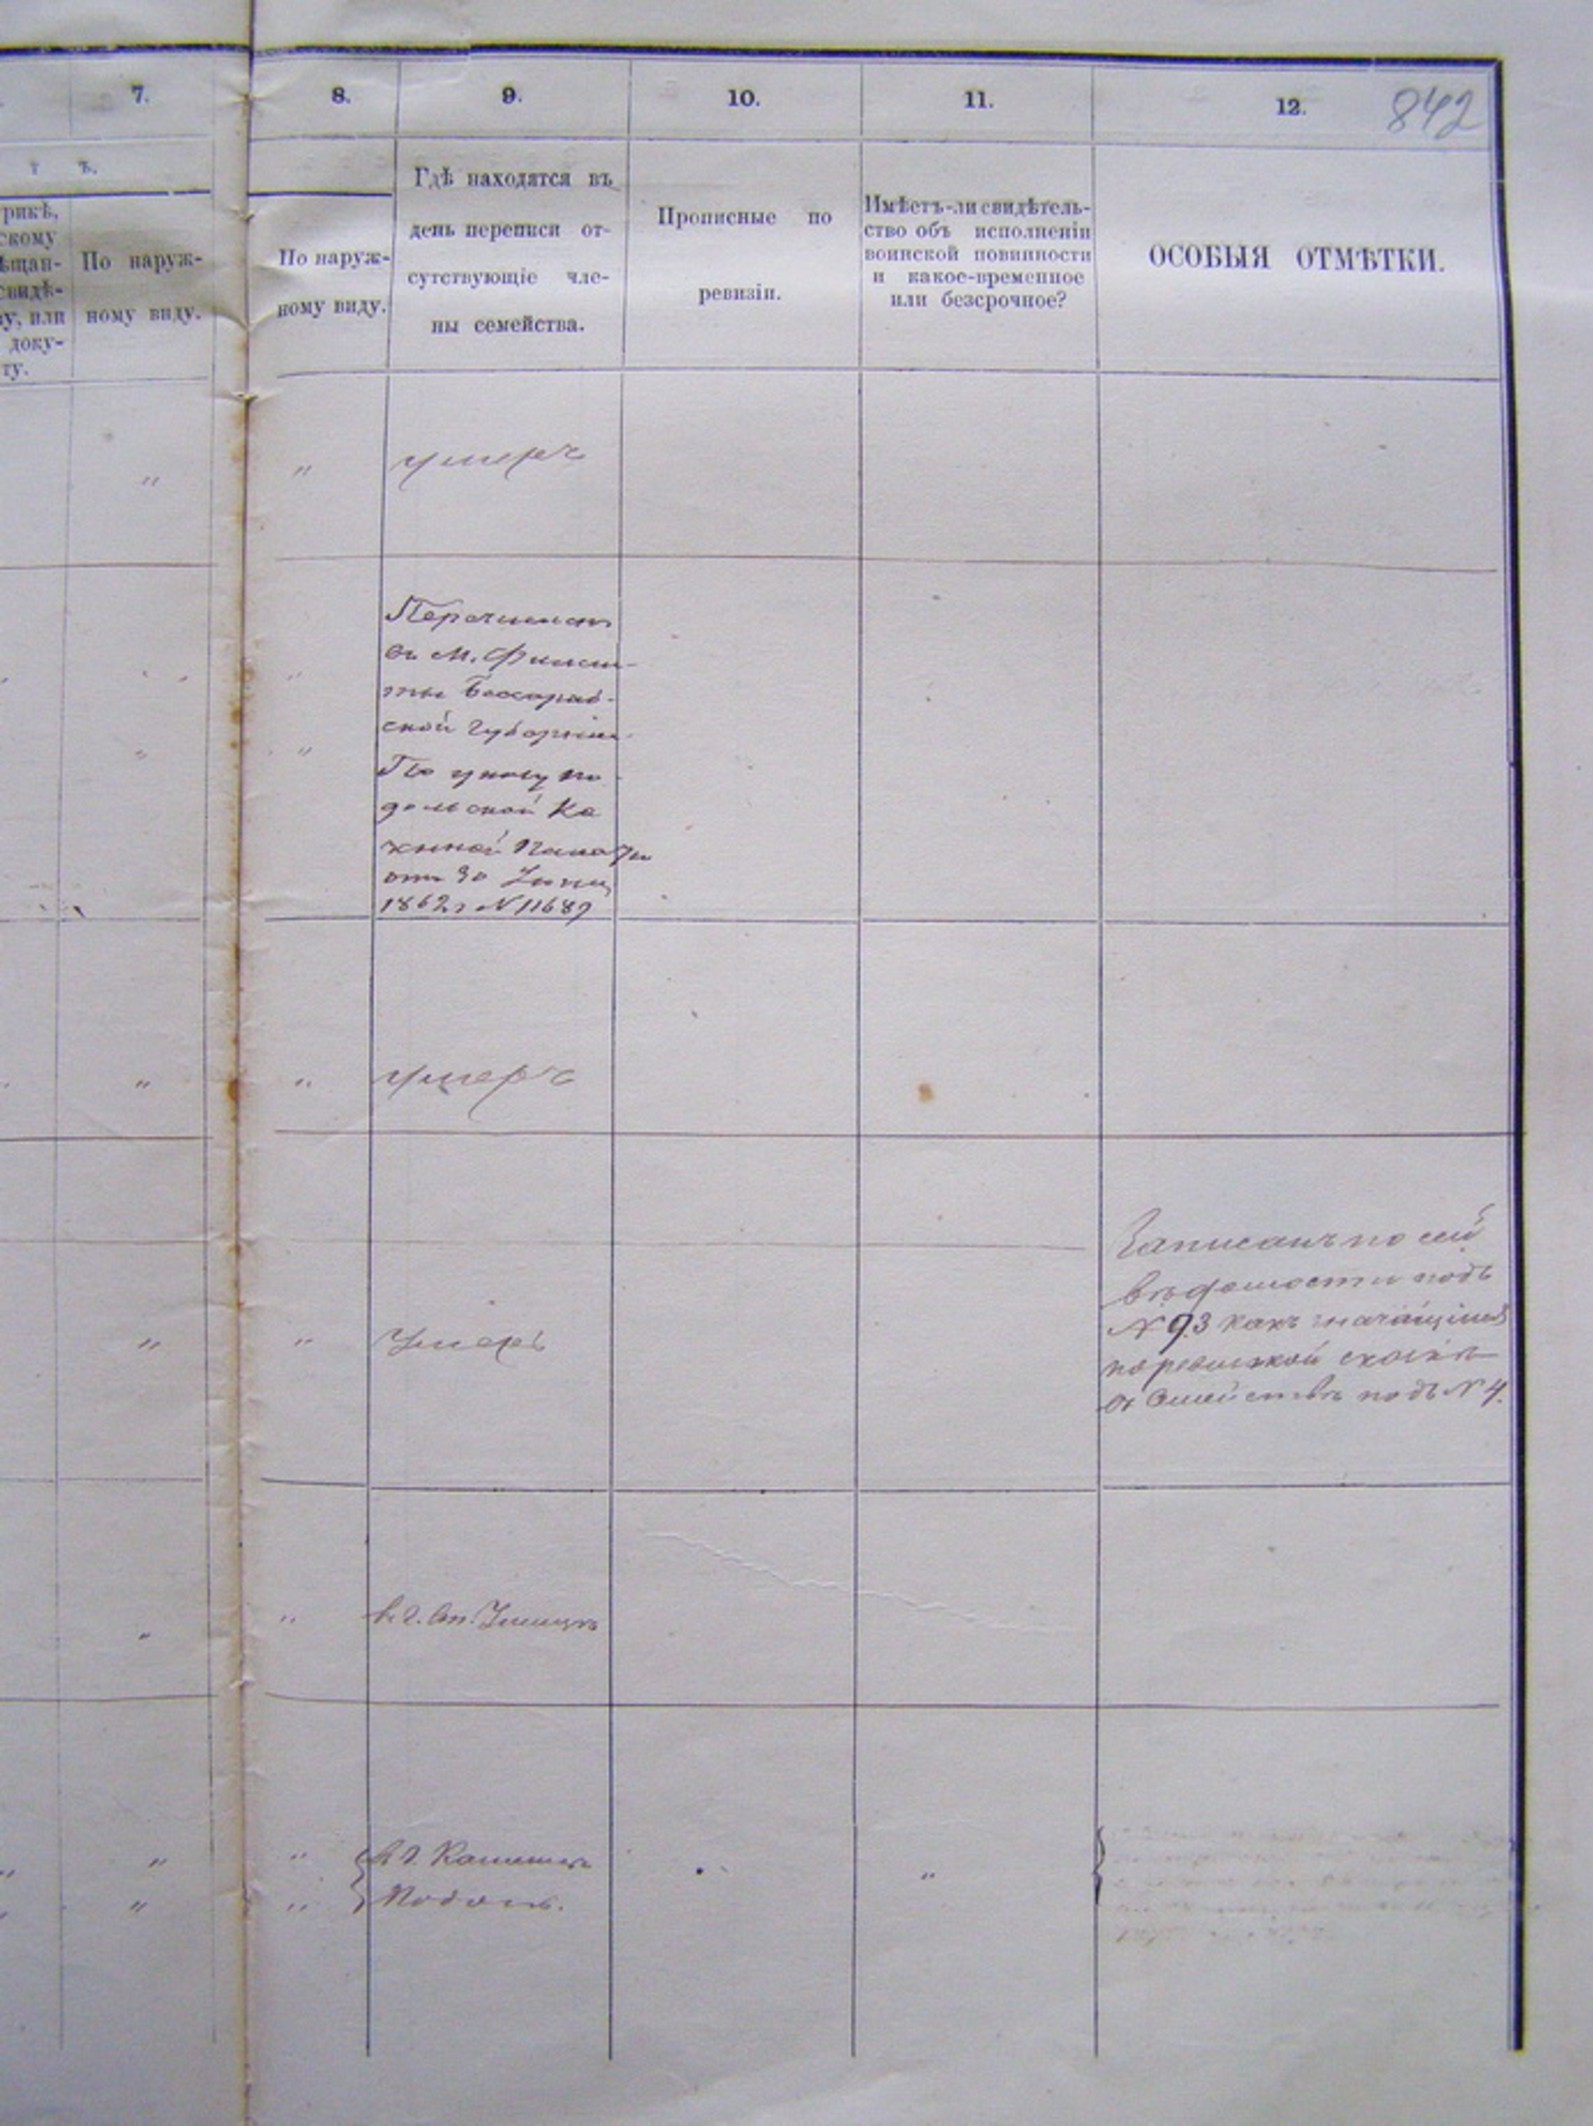 7. 8. 9. 10. 11. 12. 842
т ъ.
рикѣ,
скому
ѣщан-
свидѣ-
ву, или
доку-
ту.
По наруж-
ному виду.
По наруж-
ному виду.
Гдѣ находятся въ
день переписи от-
сутствующіе чле-
ны семейства.
Прописные по
ревизіи.
Имѣетъ-ли свидѣтель-
ство объ исполненіи
воинской повинности
и какое-временное
или безсрочное?
ОСОБЫЯ ОТМѢТКИ.
" " умеръ
Перечислен
въ м.
Бессараб-
ской Губерніи
По указу По
дольской Ка
зенной Палаты
отъ 30 Іюня
1862 г N 11689
" " умеръ
Записанъ по сей
вѣдомости подъ
N 93 какъ значащійся
по ревизской сказкѣ
въ Семействѣ подъ N 4.
" " Умеръ
" " въ г. Ст. Ушицѣ
" " въ г. Каменцѣ "
" " Подол.